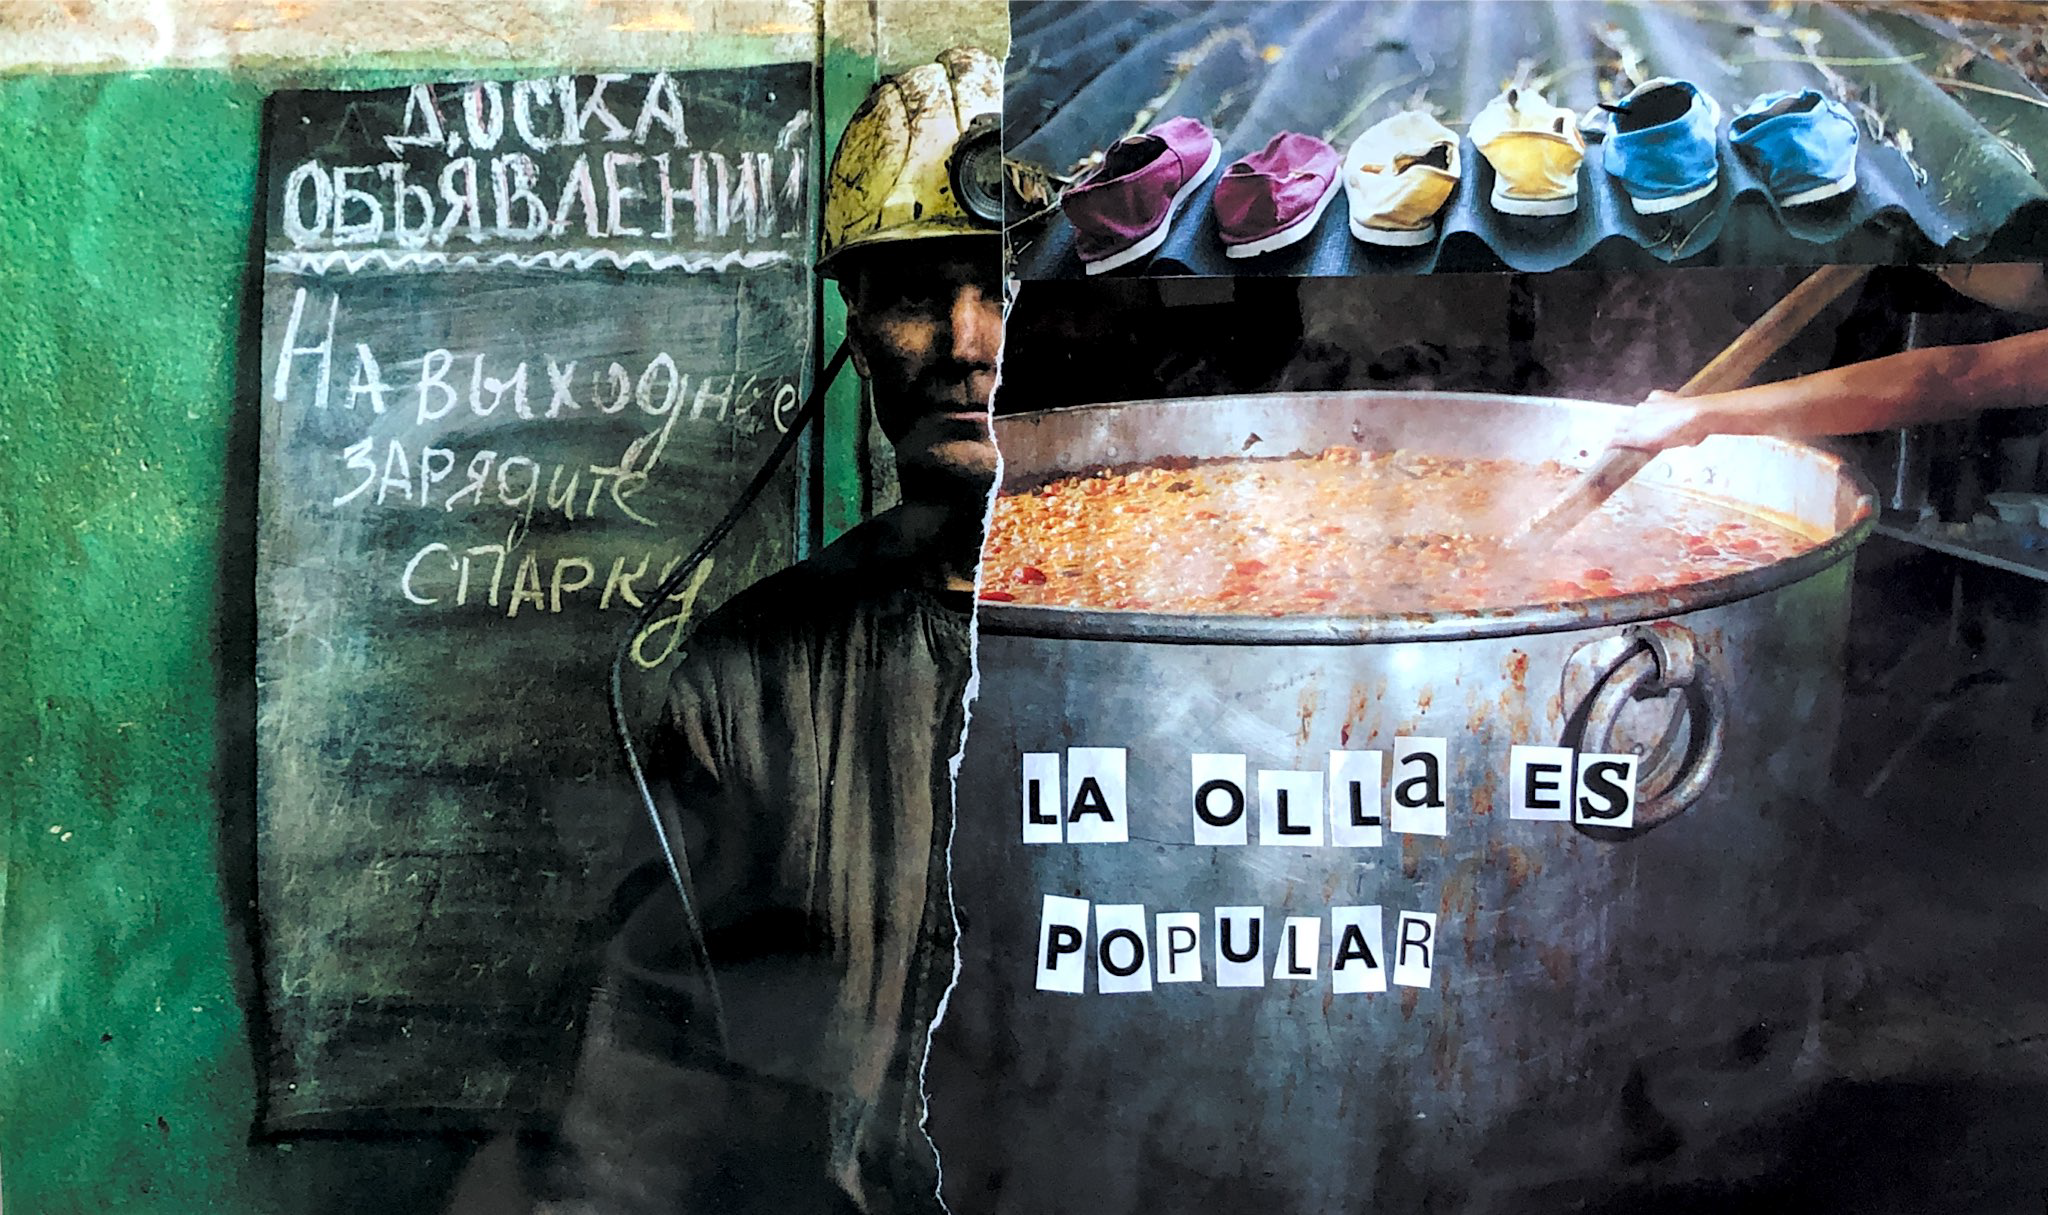 ДОСКА
ОБЪЯВЛЕНИЙ
НА ВЫХОДНЫЕ
ЗАРЯДИТЕ
СПАРКУ
LA OLLa ES
POPULAR